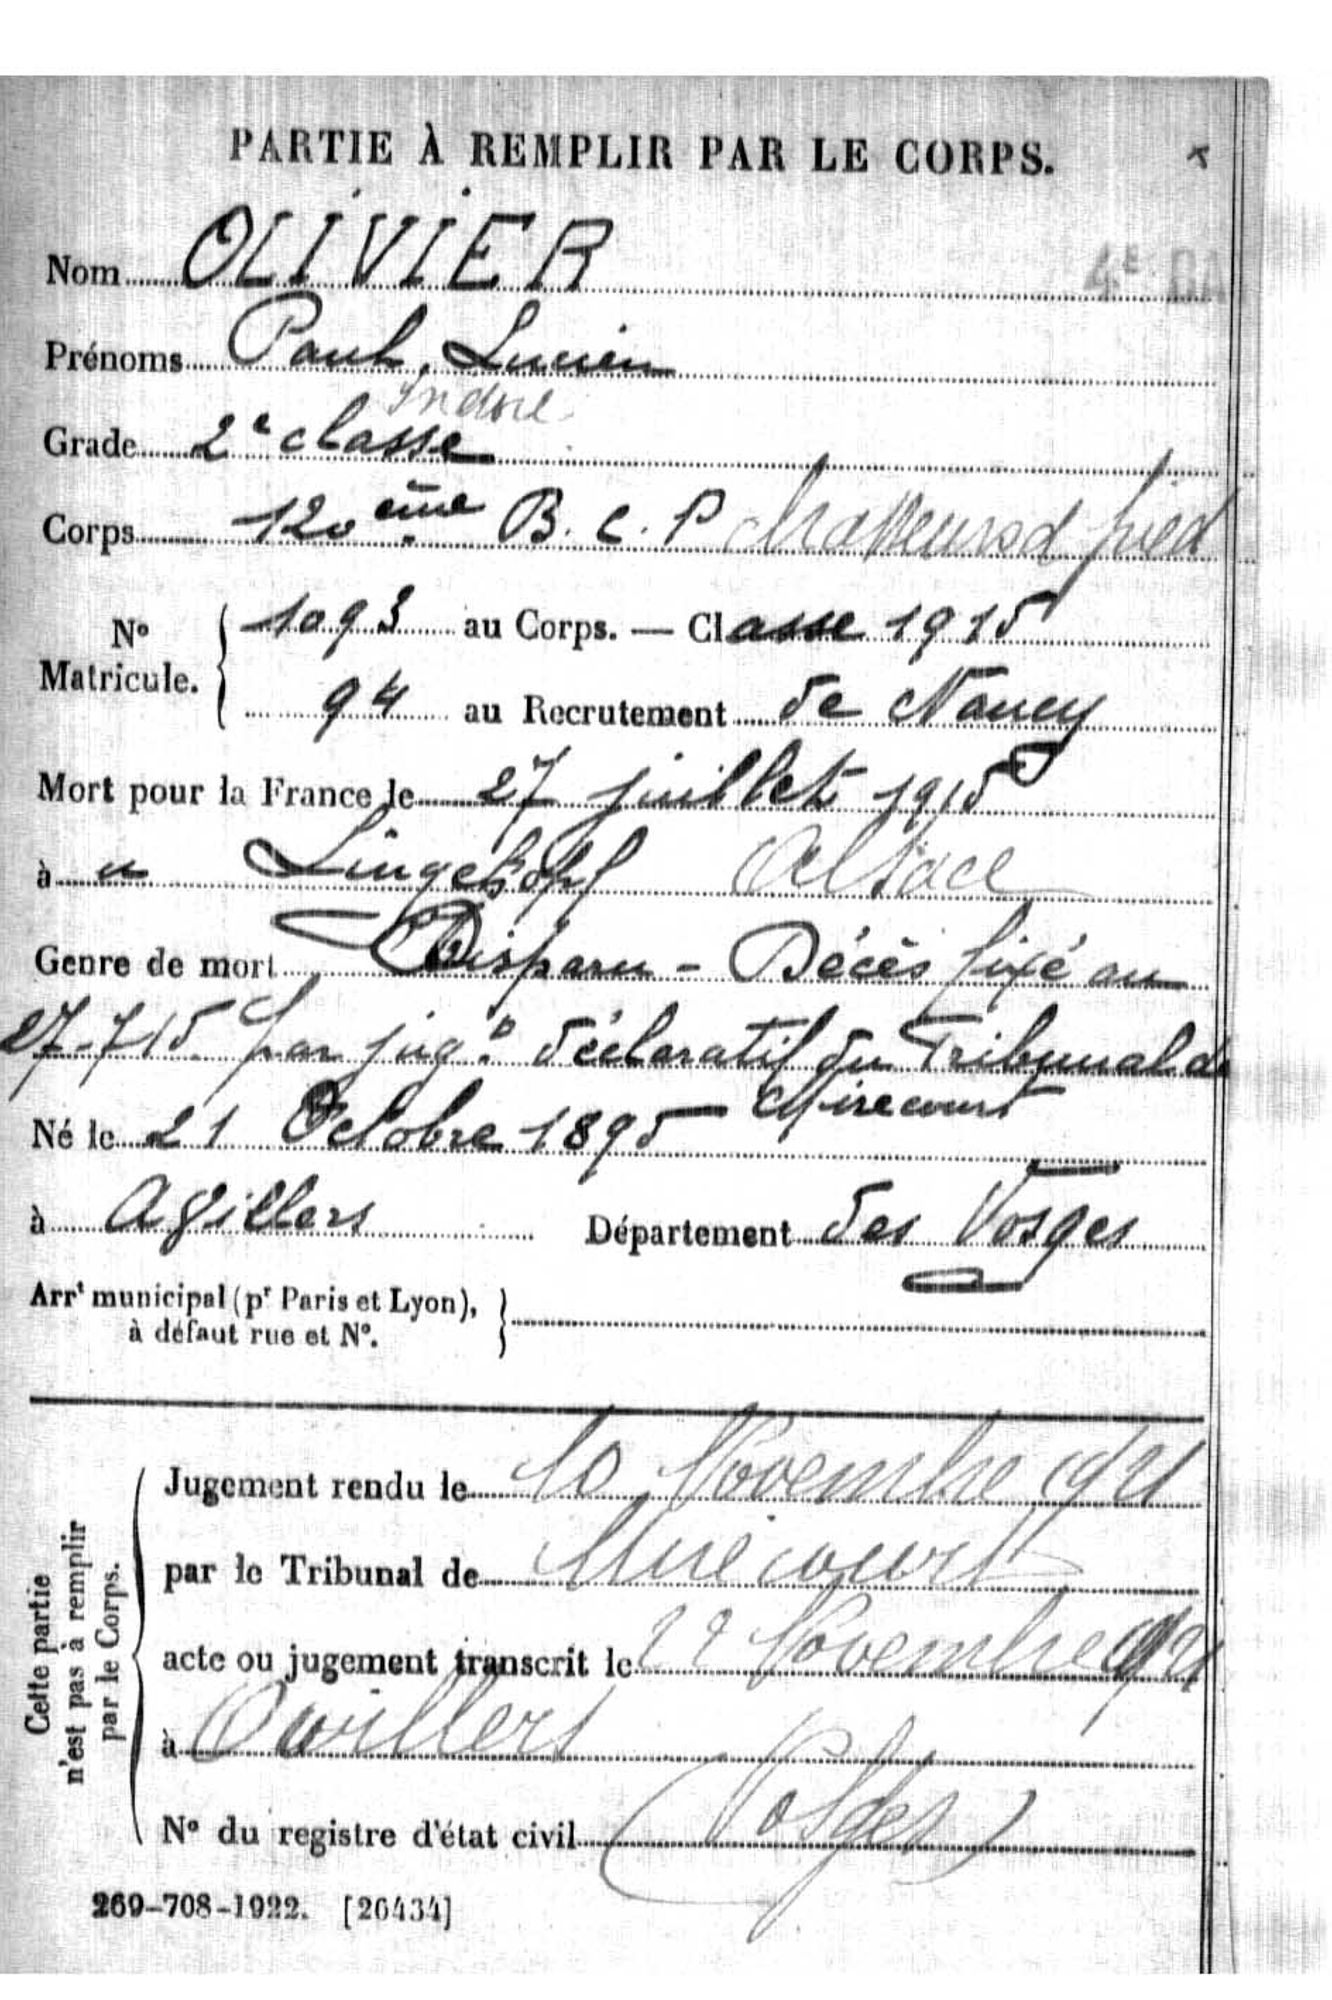 PARTIE À REMPLIR PAR LE CORPS.
4E BA
Nom OLIVIER
Prénoms Paul, Lucien
Grade 2e classe
Corps 120ème B. C. P chasseurs à pied
No Matricule. 1093 au Corps. — Classe 1915
94 au Recrutement de Nancy
Mort pour la France le 27 juillet 1915
à au Lingekopf Alsace
Genre de mort Disparu - Décès fixé au
27-7-15 par jugt déclaratif du Tribunal de
Mirecourt
Né le 21 Octobre 1895
à Avillers Département des Vosges
Arrt municipal (pr Paris et Lyon),
à défaut rue et No.
Cette partie
n'est pas à remplir
par le Corps.
Jugement rendu le 10 Novembre 1921
par le Tribunal de Mirecourt
acte ou jugement transcrit le 22 Novembre 1921
à Avillers
No du registre d'état civil (Vosges)
269-708-1922. [26434]